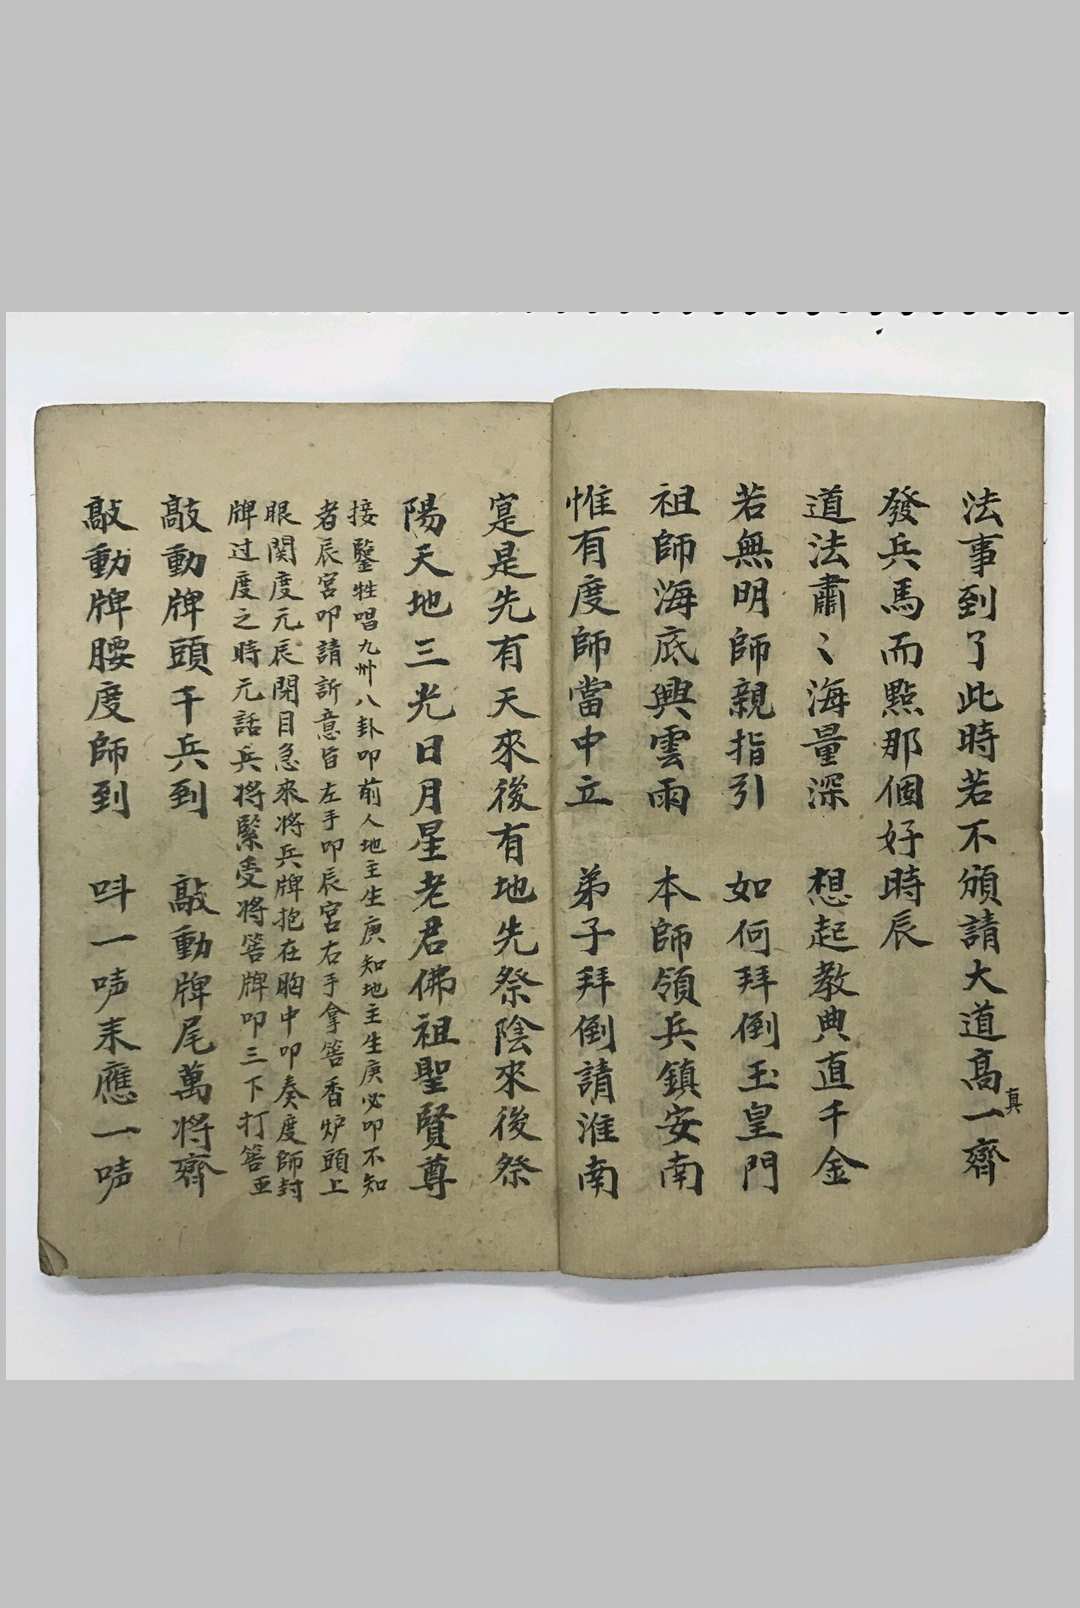 法事到了此時若不頒請大道高真一齊
發兵馬而點那個好時辰
道法肅〻海量深 想起教典直千金
若無明師親指引 如何拜倒玉皇門
祖師海底興雲雨 本師領兵鎮安南
惟有度師當中立 弟子拜倒請淮南
寔是先有天來後有地先祭陰來後祭
陽天地三光日月星老君佛祖聖賢尊
接鑒牲唱九卅八卦叩前人地主生庚知地主生庚必叩不知
者辰宮叩請訴意旨左手叩辰宮右手拿筶香炉頭上
眼関度元辰閉目急來将兵牌抱在胸中叩奏度師封
牌过度之時元話兵将緊受将筶牌叩三下打筶亚
敲動牌頭千兵到 敲動牌尾萬将齊
敲動牌腰度師到 呌一唦来應一唦